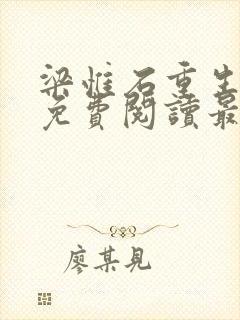 梁惟石重生
免費閱讀最
廖某見